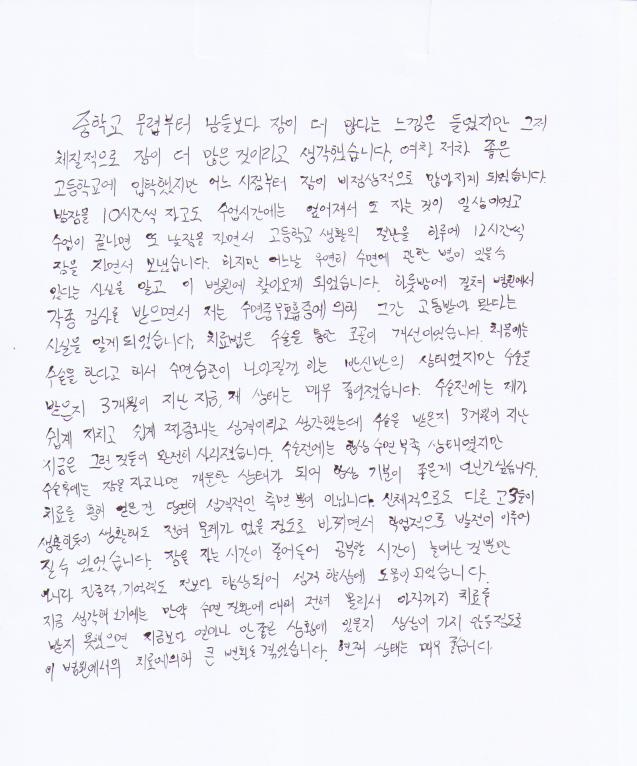 중학교 무렵부터 남들보다 잠이 더 많다는 느낌은 들었지만 그저
체질적으로 잠이 더 많은 것이라고 생각했습니다. 여차 저차 좋은
고등학교에 입학했지만 어느 시점부터 잠이 비정상적으로 많아지게 되었습니다.
밤잠을 10시간씩 자고도 수업시간에는 엎어져서 또 자는 것이 일상이었고
수업이 끝나면 또 낮잠을 자면서 고등학교 생활의 절반을 하루에 12시간씩
잠을 자면서 보냈습니다. 하지만 어느날 우연히 수면에 관한 병이 있을수
있다는 사실을 알고 이 병원에 찾아오게 되었습니다. 하룻밤에 걸쳐 병원에서
각종 검사를 받으면서 저는 수면중무호흡증에 의해 그간 고통받아 왔다는
사실을 알게 되었습니다. 치료법은 수술을 통한 코골이 개선이었습니다. 처음에는
수술을 한다고 해서 수면습관이 나아질까 하는 반신반의 상태였지만 수술을
받은지 3개월이 지난 지금, 제 상태는 매우 좋아졌습니다. 수술전에는 제가
쉽게 지치고 쉽게 짜증내는 성격이라고 생각했는데 수술을 받은지 3개월이 지난
지금은 그런 것들이 완전히 사라졌습니다. 수술전에는 항상 수면 부족 상태였지만
수술후에는 잠을 자고나면 개운한 상태가 되어 항상 기분이 좋은게 아닌가싶습니다.
치료를 통해 얻은 건 단편적 성격적인 측면 뿐이 아닙니다. 신체적으로도 다른 고3들이
생활하듯이 생활해도 전혀 문제가 없을 정도로 바뀌면서 학업적으로 발전이 이루어
질수 있었습니다. 잠을 자는 시간이 줄어들어 공부할 시간이 늘어난 것뿐만
아니라 집중력, 기억력도 전보다 향상되어 성적 향상에 도움이 되었습니다.
지금 생각해 보기에는 만약 수면 질환에 대해 전혀 몰라서 아직까지 치료를
받지 못했으면 지금보다 얼마나 안좋은 상황에 있을지 상상이 가지 않을정도로
이 병원에서의 치료에의해 큰 변화를 겪었습니다. 현재 상태는 매우 좋습니다.